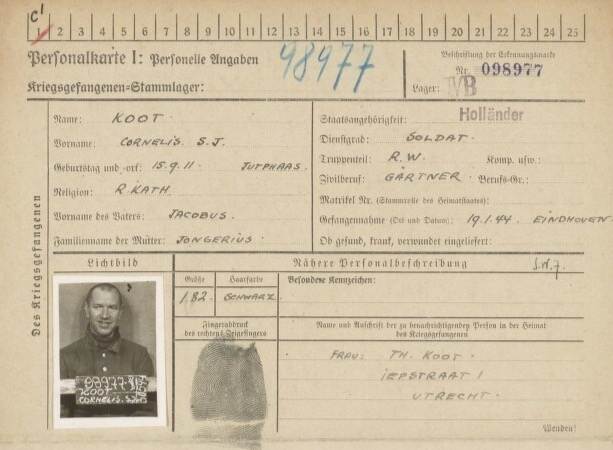 C'
1 2 3 4 5 6 7 8 9 10 11 12 13 14 15 16 17 18 19 20 21 22 23 24 25
Personalkarte I: Personelle Angaben
98977
Beschriftung der Erkennungsmarke
Nr. 098977
Kriegsgefangenen=Stammlager:
Lager: IVB
Des Kriegsgefangenen
Name: KOOT.
Vorname: CORNELIS. S.J.
Geburtstag und =ort: 15.9.11 JUTPHAAS.
Religion: R. KATH.
Vorname des Vaters: JACOBUS.
Familienname der Mutter: JONGERIUS.
Staatsangehörigkeit: Holländer
Dienstgrad: SOLDAT.
Truppenteil: R.W. Komp. usw.:
Zivilberuf: GÄRTNER. Berufs-Gr.:
Matrikel Nr. (Stammrolle des Heimatstaates):
Gefangennahme (Ort und Datum): 19.1.44. EINDHOVEN.
Ob gesund, krank, verwundet eingeliefert:
Lichtbild
Nähere Personalbeschreibung
Größe Haarfarbe Besondere Kennzeichen:
1,82. SCHWARZ.
Fingerabdruck
des rechten Zeigefingers
Name und Anschrift der zu benachrichtigenden Person in der Heimat
des Kriegsgefangenen
FRAU: TH. KOOT.
IEPSTRAAT 1
UTRECHT.
Wenden!
98977
KOOT
CORNELIS. SJ